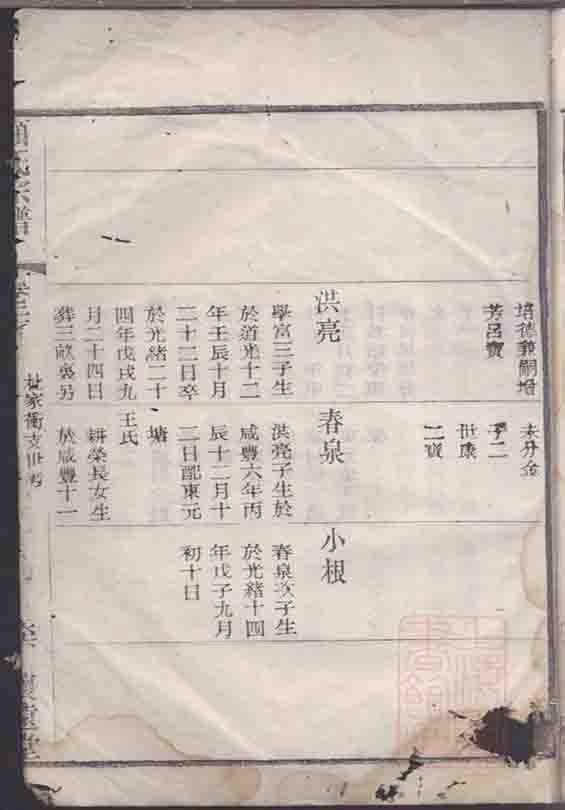 培德義嗣增
芳呂寶
未分金
子二
世康
二寶
洪亮
學富三子生
於道光十二
年壬辰十月
二十二日卒
於光緒二十
四年戊戌九
月二十四日
葬三畝裏另
春泉
洪亮子生於
咸豐六年丙
辰十二月十
二日配東元
塘
王氏
耕榮長女生
於咸豐十一
小根
春泉次子生
於光緒十四
年戊子九月
初十日
氏宗譜
家衖支世
遠堂